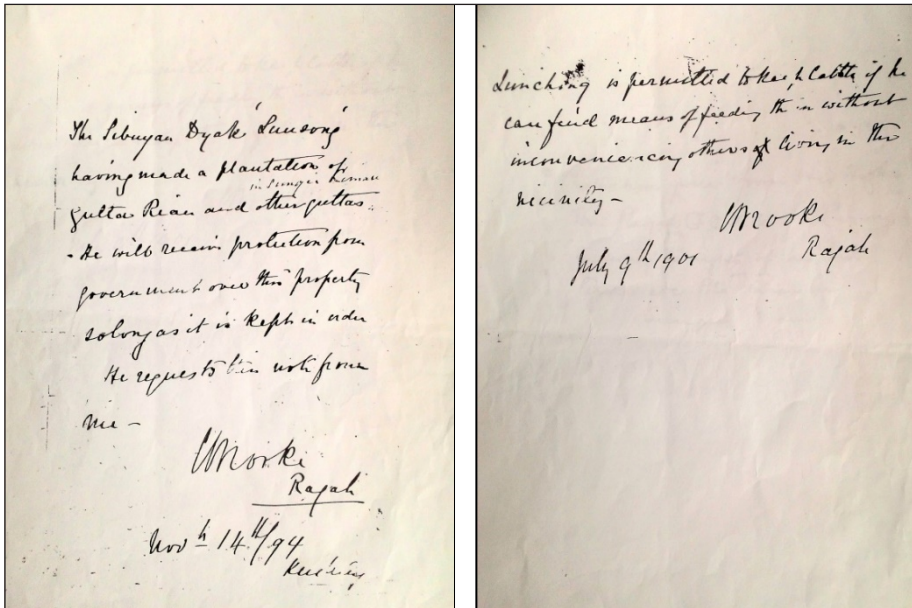 The Sibuyan Dyak Lunsong
having made a plantation of
in Sungie
gutta Rian and other guttas
- He will receive protection from
government over this property
so long as it is kept in order
He requests this note from
me -
CBrooke
Rajah
Novh 14th/94
Kuching
Lunching is permitted to keep Cattle if he
can find means of feeding them without
inconveniencing others living in the
vicinity -
CBrooke
Rajah
July 9th 1901